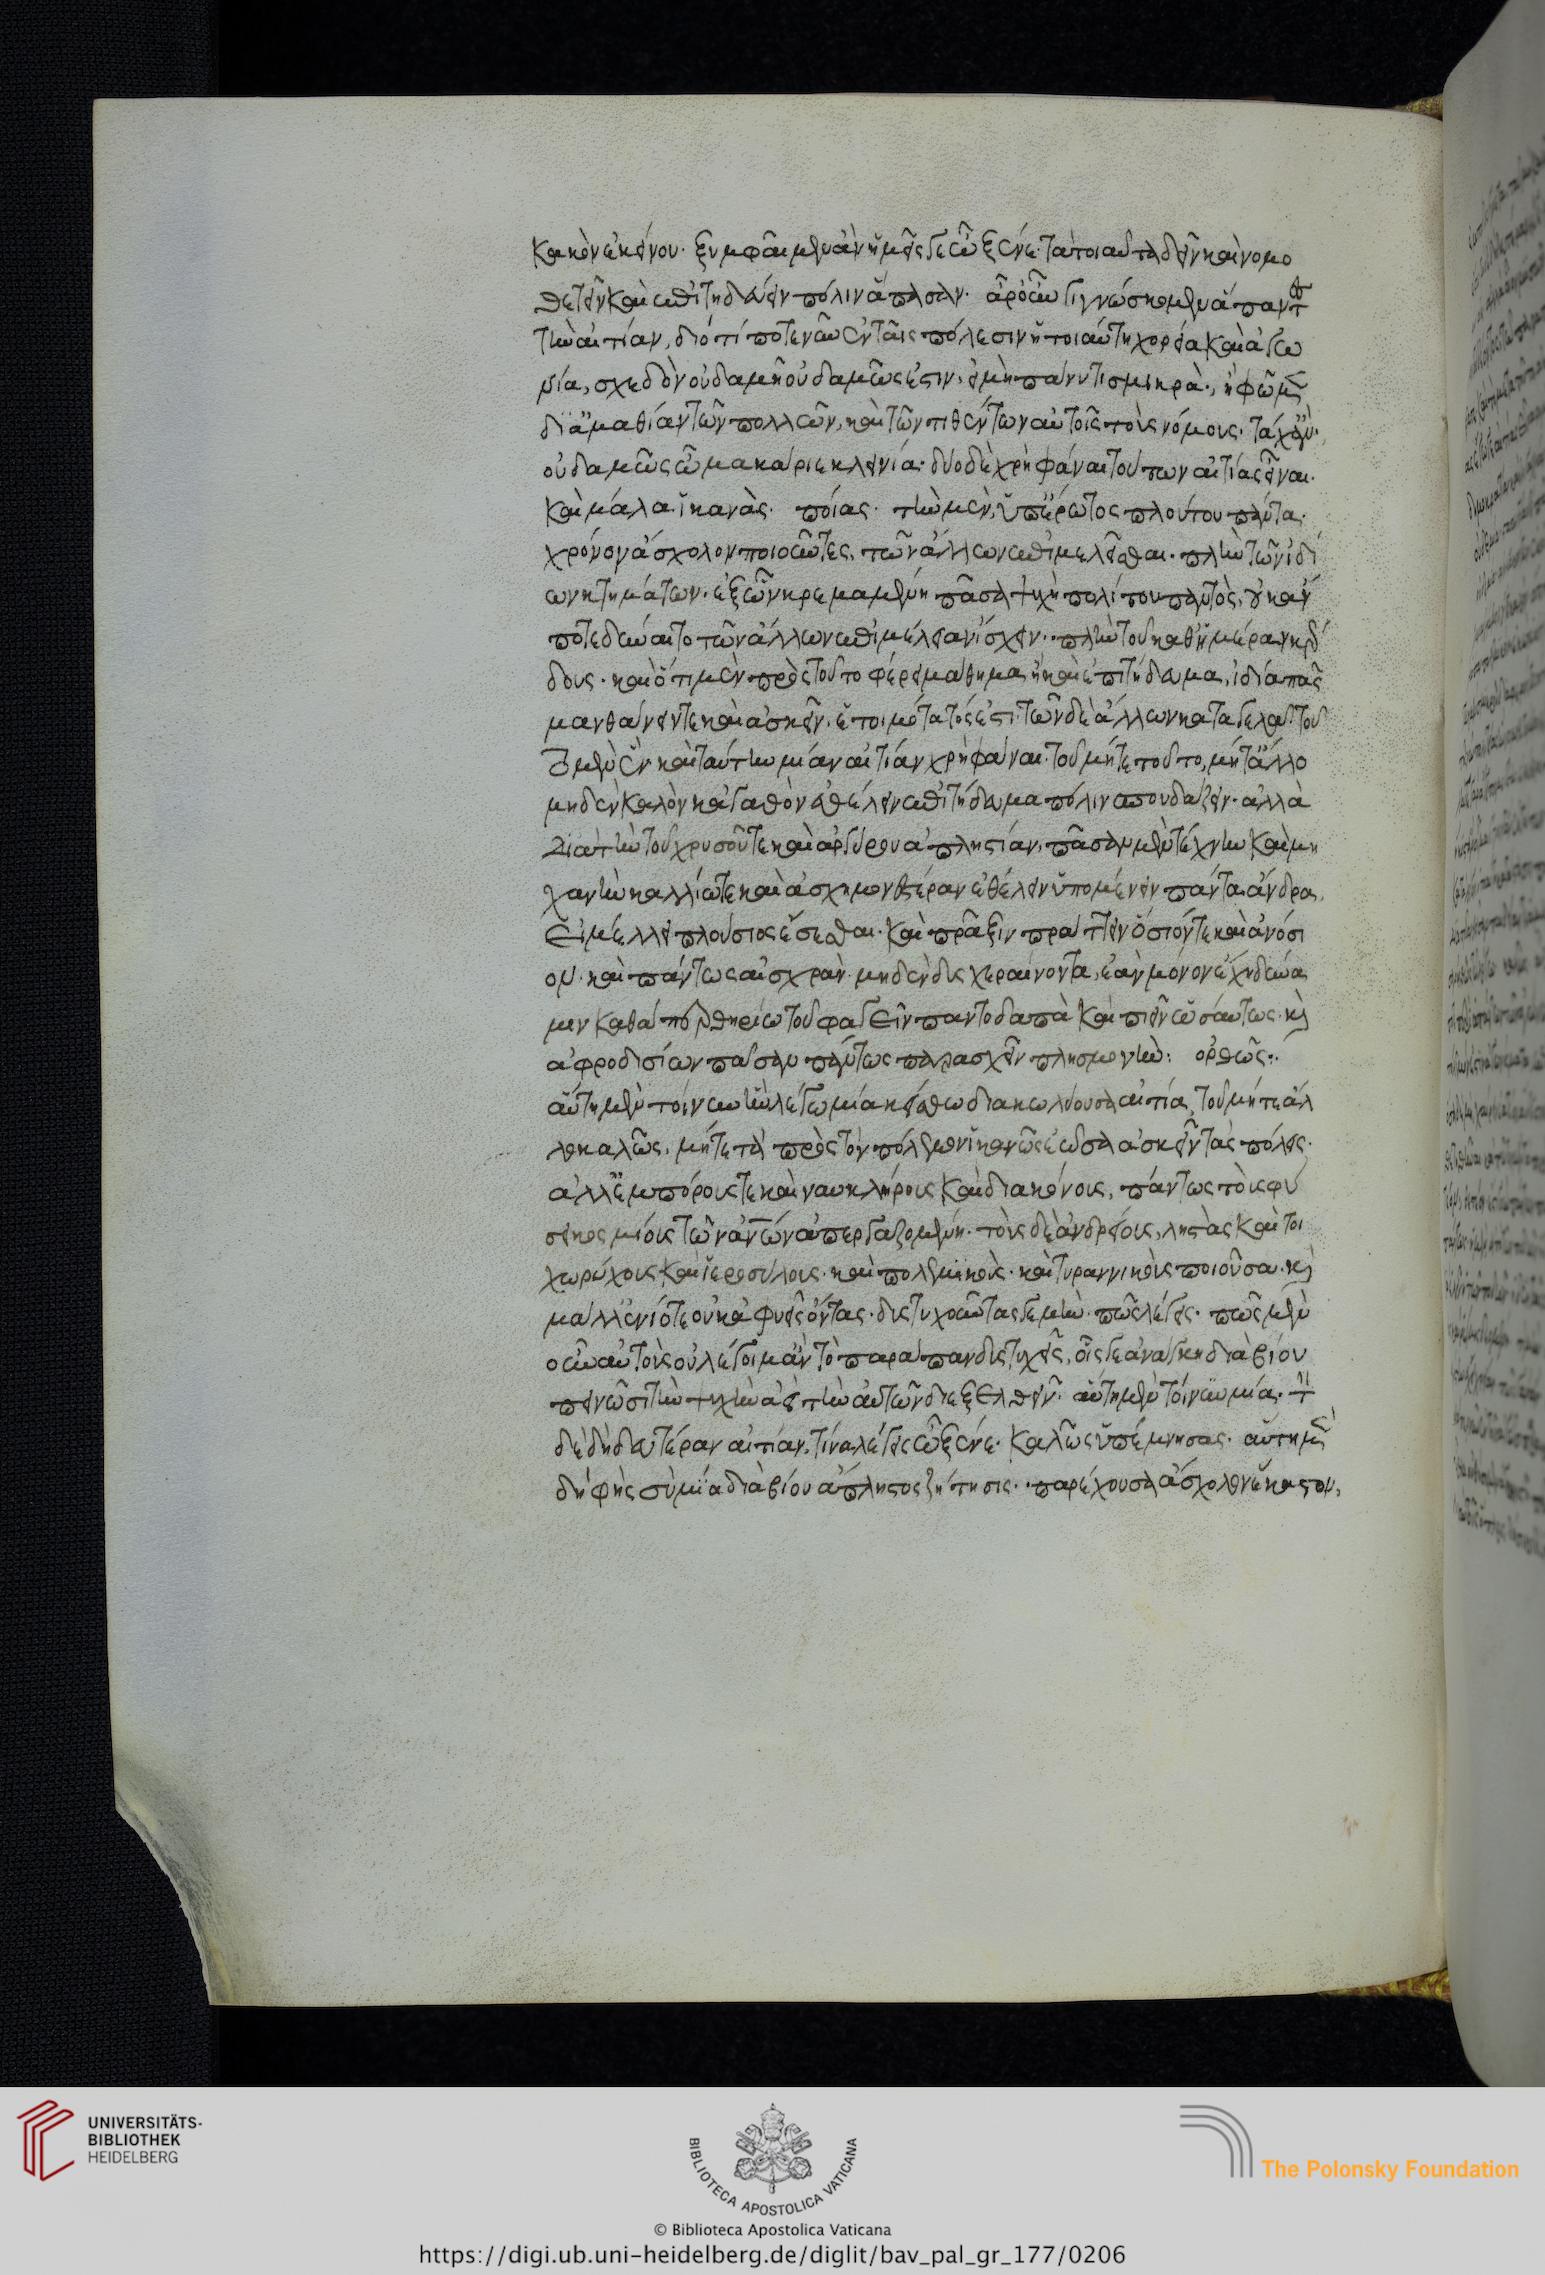 κακὸν ἐκείνου· ξυμφαῖμεν ἂν ἡμεῖς γε ὦ ξένε· τὰ τοιαῦτα δεῖν καὶ νομο
θετεῖν καὶ ἐπιτηδεύειν πόλιν ἅπασαν· ἆρ' οὖν γιγνώσκομεν ἅπαντες
τὴν αἰτίαν, διότί ποτε νῦν ἐν ταῖς πόλεσιν ἡ τοιαύτη χορεία καὶ ἀγω
νία, σχεδὸν οὐδαμῆ οὐδαμῶς ἐστιν· εἰ μὴ πάνυ τι σμικρὰ· ἢ φῶμεν
δι' ἀμαθίαν τῶν πολλῶν, καὶ τῶν τιθέντων αὐτοῖς τοὺς νόμους· τάχ' ἄν·
οὐδαμῶς ὦ μακάριε κλεινία· δύο δὲ χρὴ φάναι τούτων αἰτίας εἶναι·
καὶ μάλα ἱκανὰς· ποίας· τὴν μὲν, ὑπ' ἔρωτος πλούτου πάντα
χρόνον ἄσχολον ποιοῦντες, τῶν ἄλλων ἐπιμελεῖσθαι· πλὴν τῶν ἰδί
ων κτημάτων· ἐξ ὧν κρεμαμένη πᾶσα ψυχὴ πολίτου παντὸς, οὐκ ἄν
ποτε δύναιτο τῶν ἄλλων ἐπιμέλειαν ἴσχειν· πλὴν τοῦ καθ' ἡμέραν κέρ
δους· καὶ ὅτι μὲν πρὸς τοῦτο φέρει μάθημα ἢ καὶ ἐπιτήδευμα, ἰδίᾳ πᾶς
μανθάνειν τε καὶ ἀσκεῖν, ἑτοιμότατός ἐστι· τῶν δὲ ἄλλων καταγελᾷ· τοῦ
το μὲν ἓν καὶ ταύτην μίαν αἰτίαν χρὴ φάναι· τοῦ μήτε τοῦτο, μήτ' ἄλλο
μηδὲν καλὸν κἀγαθὸν ἐθέλειν ἐπιτήδευμα πόλιν σπουδάζειν· ἀλλὰ
διὰ τὴν τοῦ χρυσοῦ τε καὶ ἀργύρου ἀπληστίαν, πᾶσαν μὲν τέχνην καὶ μη
χανὴν καλλίω τε καὶ ἀσχημονεστέραν ἐθέλειν ὑπομένειν πάντα ἄνδρα,
εἰ μέλλει πλούσιος ἔσεσθαι· καὶ πρᾶξιν πράττειν ὅσιόν τε καὶ ἀνόσι
ον· καὶ πάντως αἰσχρὰν· μηδὲν δυσχεραίνοντα, ἐὰν μόνον ἔχη δύνα
μιν καθάπερ θηρίω τοῦ φαγεῖν παντοδαπὰ καὶ πιεῖν ὡσαύτως· καὶ
ἀφροδισίων πᾶσαν πάντως παρασχεῖν πλησμονὴν: ὀρθῶς·
αὕτη μὲν τοίνυν ἣν λέγω μία κείσθω διακωλύουσα αἰτία τοῦ μήτε ἄλ
λο καλῶς, μήτε τὰ πρὸς τὸν πόλεμον ἱκανῶς ἐῶσα ἀσκεῖν τὰς πόλεις·
ἀλλ' ἐμπόρους τε καὶ ναυκλήρους καὶ διακόνους, πάντως τοὺς φύ
σει κοσμίους τῶν ἀνθρώπων ἀπεργαζομένη· τοὺς δὲ ἀνδρείους, λῃστὰς καὶ τοι
χωρύχους καὶ ἱεροσύλους· καὶ πολεμικοὺς· καὶ τυραννικοὺς ποιοῦσα· καὶ
μάλ' ἐνίοτε οὐκ ἀφυεῖς ὄντας· δυστυχοῦντας γε μὴν· πῶς λέγεις· πῶς μὲν
οὖν αὐτοὺς οὐ λέγοιμ' ἂν τὸ παράπαν δυστυχεῖς, οἷς γε ἀνάγκη διὰ βίου
πεινῶσι τὴν ψυχὴν ἀεὶ τὴν αὑτῶν διεξελθεῖν· αὕτη μὲν τοίνυν μία· τὴν
δὲ δὴ δευτέραν αἰτίαν, τίνα λέγεις ὦ ξένε· καλῶς ὑπέμνησας· αὕτη μὲν
δὴ φῂς σὺ μία διὰ βίου ἄπληστος ζήτησις· παρέχουσα ἄσχολον ἕκαστον,
UNIVERSITÄTS-
BIBLIOTHEK
HEIDELBERG
BIBLIOTECA APOSTOLICA VATICANA
The Polonsky Foundation
© Biblioteca Apostolica Vaticana
https://digi.ub.uni-heidelberg.de/diglit/bav_pal_gr_177/0206